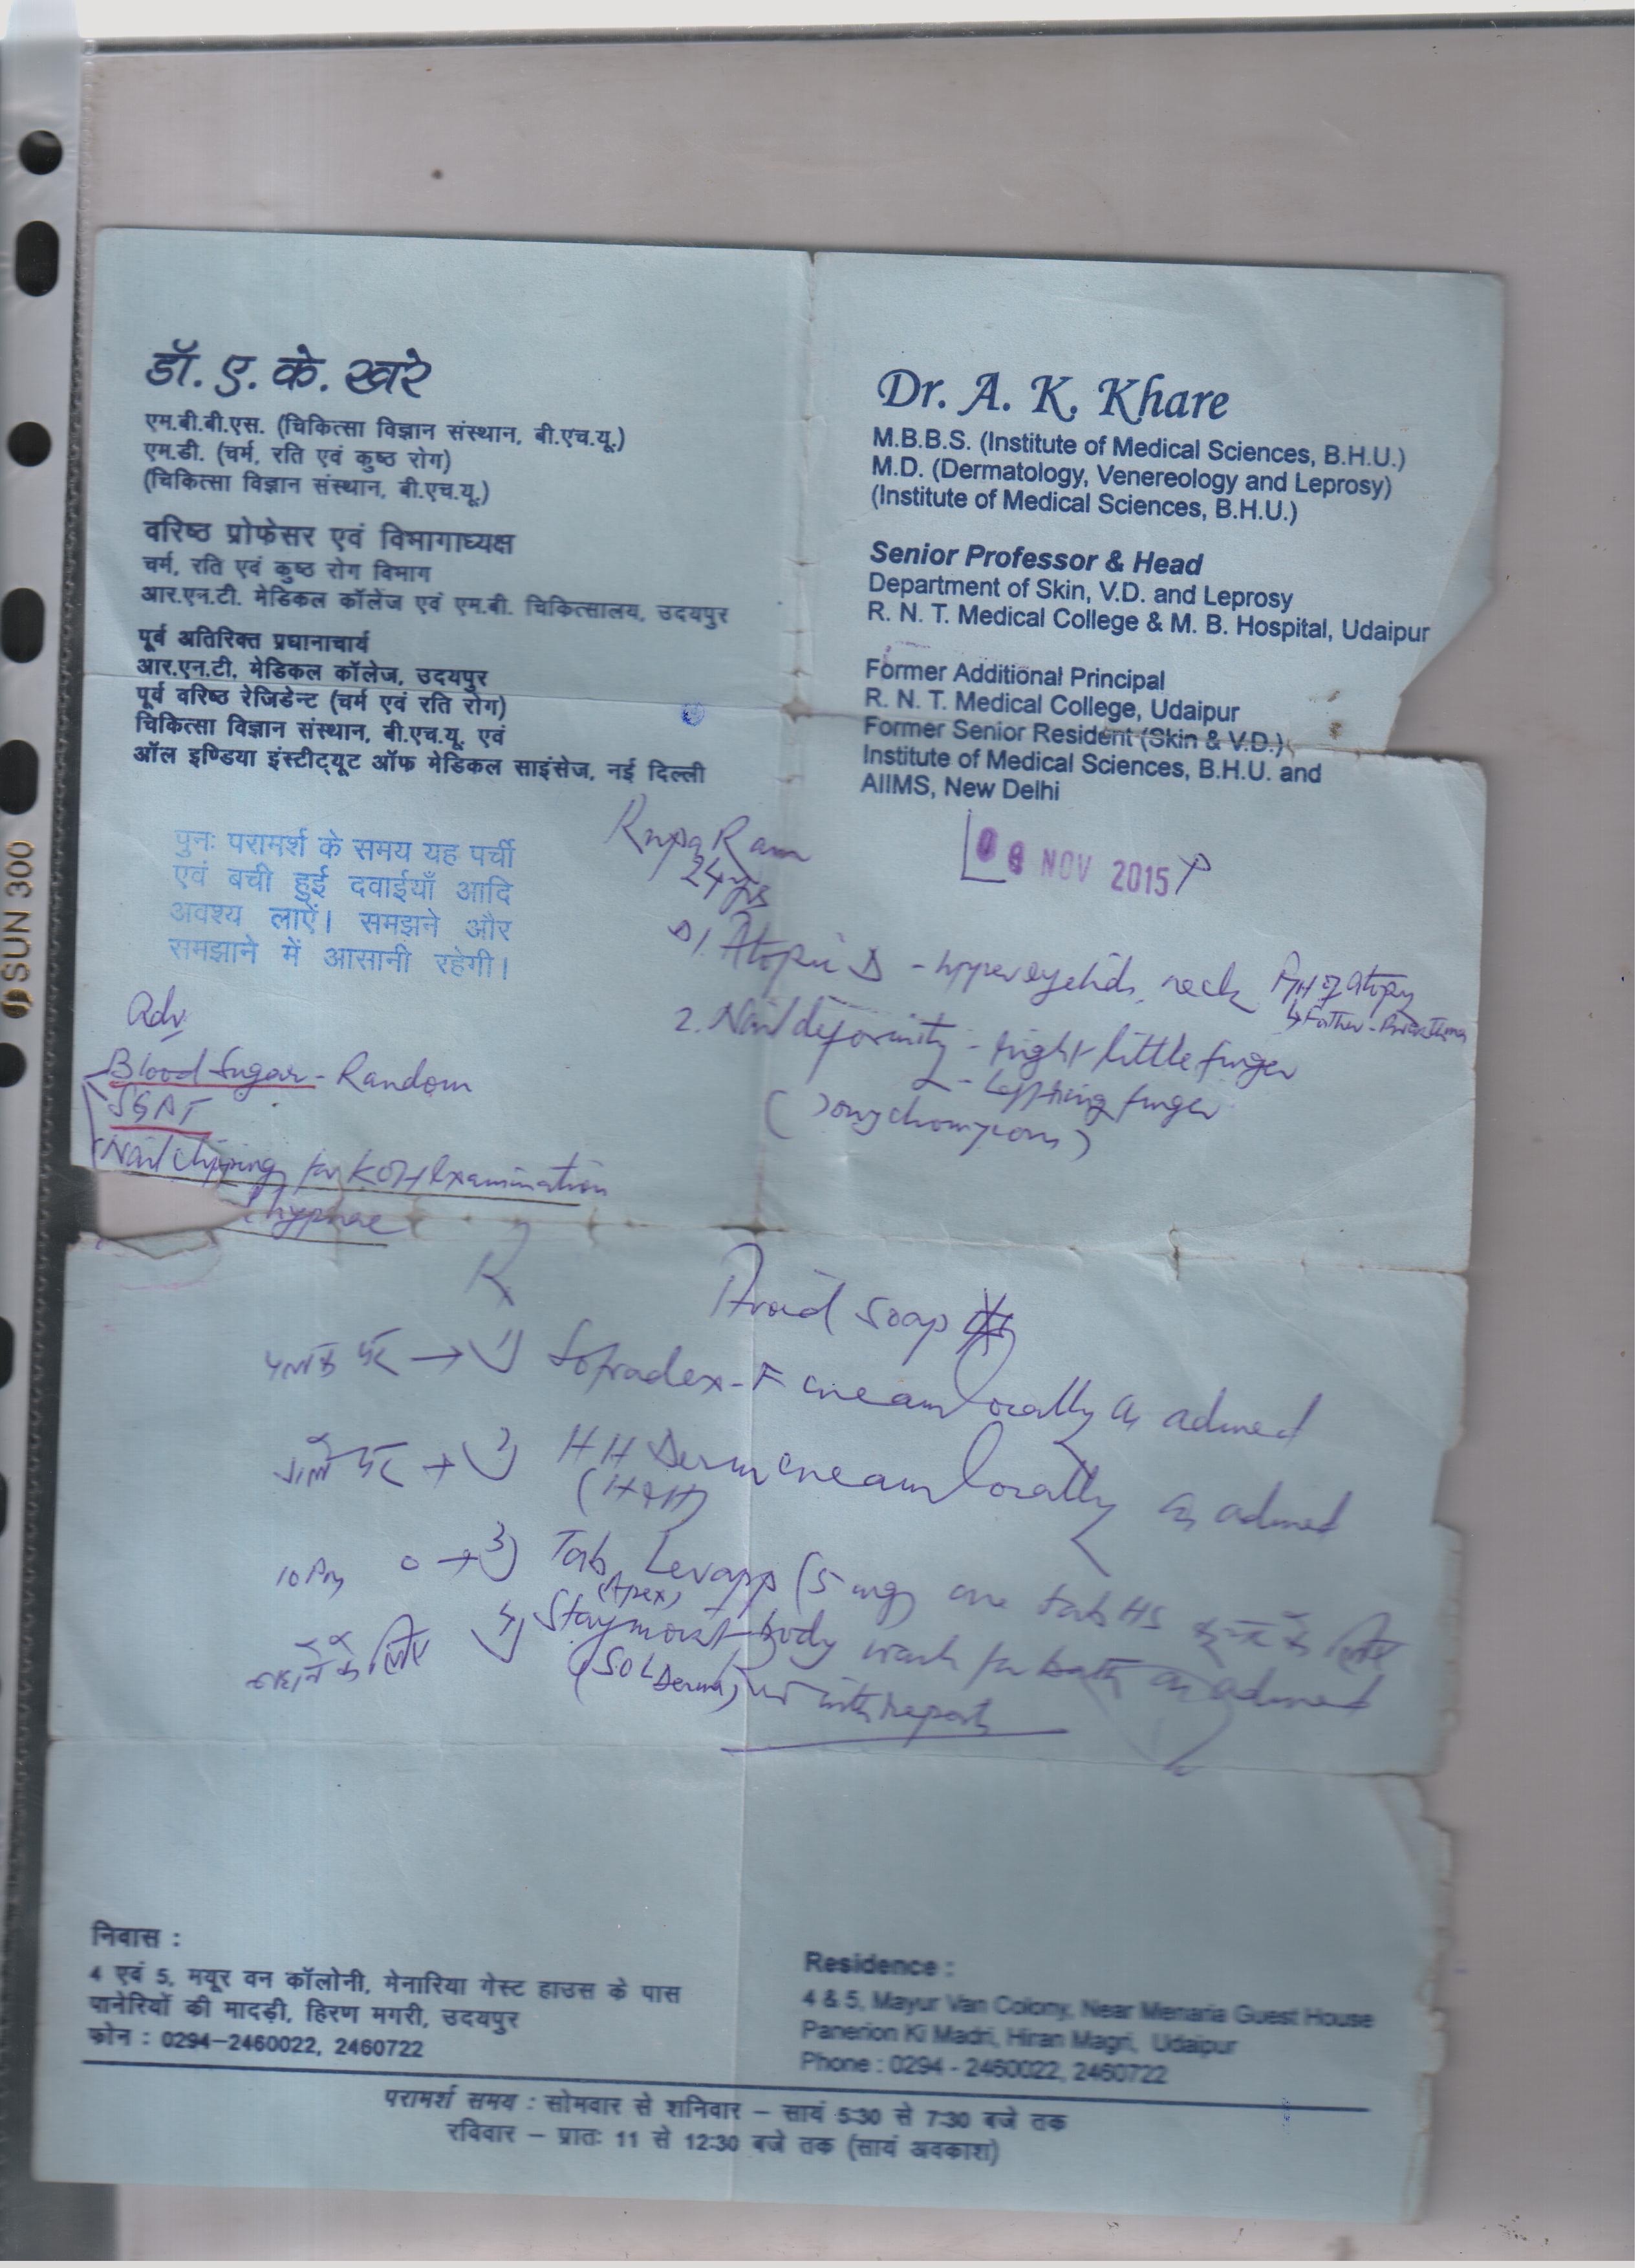 डॉ. ए. के. खरे
एम.बी.बी.एस. (चिकित्सा विज्ञान संस्थान, बी.एच.यू.)
एम.डी. (चर्म, रति एवं कुष्ठ रोग)
(चिकित्सा विज्ञान संस्थान, बी.एच.यू.)
वरिष्ठ प्रोफेसर एवं विभागाध्यक्ष
चर्म, रति एवं कुष्ठ रोग विभाग
आर.एन.टी. मेडिकल कॉलेज एवं एम.बी. चिकित्सालय, उदयपुर
पूर्व अतिरिक्त प्रधानाचार्य
आर.एन.टी. मेडिकल कॉलेज, उदयपुर
पूर्व वरिष्ठ रेजिडेन्ट (चर्म एवं रति रोग)
चिकित्सा विज्ञान संस्थान, बी.एच.यू. एवं
ऑल इण्डिया इंस्टीट्यूट ऑफ मेडिकल साइंसेज, नई दिल्ली
Dr. A. K. Khare
M.B.B.S. (Institute of Medical Sciences, B.H.U.)
M.D. (Dermatology, Venereology and Leprosy)
(Institute of Medical Sciences, B.H.U.)
Senior Professor & Head
Department of Skin, V.D. and Leprosy
R. N. T. Medical College & M. B. Hospital, Udaipur
Former Additional Principal
R. N. T. Medical College, Udaipur
Former Senior Resident (Skin & V.D.)
Institute of Medical Sciences, B.H.U. and
AIIMS, New Delhi
पुनः परामर्श के समय यह पर्ची
एवं बची हुई दवाईयाँ आदि
अवश्य लाऐं। समझने और
समझाने में आसानी रहेगी।
Rupa Ram
24 yrs
08 NOV 2015
1. Atopic D - upper eyelids, neck
of atopy
Father -
2. Nail deformity - right little finger
- left ring finger
Adv
Blood Sugar - Random
SGPT
Nail clipping for KOH Examination
hyphae
R
Avoid soap
पलक पर → 1) Sofradex-F cream locally as advised
गले पर → 2) HH Derm cream locally as advised
(H&H)
10 PM → 3) Tab Levapp (5 mg) one tab HS
(Apex)
नहाने के लिए 4) Staymoist body wash for bath as advised
(Sol Derma)
with report
निवास :
4 एवं 5, मयूर वन कॉलोनी, मेनारिया गेस्ट हाउस के पास
पानेरियों की मादड़ी, हिरण मगरी, उदयपुर
फोन : 0294-2460022, 2460722
Residence :
4 & 5, Mayur Van Colony, Near Menaria Guest House
Panerion Ki Madri, Hiran Magri, Udaipur
Phone : 0294 - 2460022, 2460722
परामर्श समय : सोमवार से शनिवार – सायं 5:30 से 7:30 बजे तक
रविवार – प्रातः 11 से 12:30 बजे तक (सायं अवकाश)
SUN 300